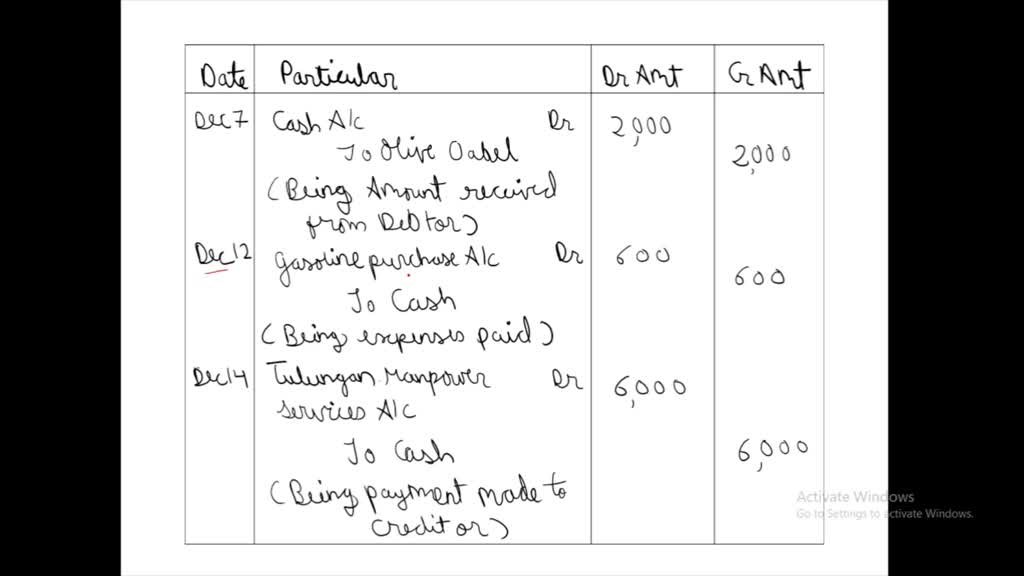 Date Particular Dr Amt Cr Amt
Dec 7 Cash A/c Dr 2,000
To Olive Oabel 2,000
(Being Amount received
from Debtor)
Dec 12 gasoline purchase A/c Dr 600
To Cash 600
(Being expenses paid)
Dec 14 Tulungan Manpower Dr 6,000
services A/c
To Cash 6,000
(Being payment made to
creditor)
Activate Windows
Go to Settings to activate Windows.